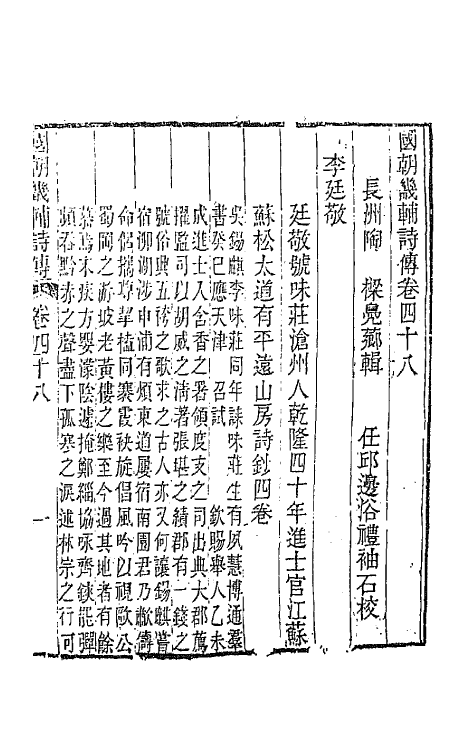 國朝畿輔詩傳卷四十八
長洲陶 樑鳧薌輯 任邱邊浴禮袖石校
李廷敬
廷敬號味莊滄州人乾隆四十年進士官江蘇
蘇松太道有平遠山房詩鈔四卷
吳錫麒李味莊同年誄味莊生有夙慧博通羣
書癸巳應天津 召試 欽賜舉人乙未
成進士入含香之署領度支之司出典大郡薦
擢監司以胡威之清著張堪之績郡有一錢之
號俗興五袴之歌求之古人亦又何讓錫麒嘗
宿泖湖涉申浦有煩東道屢宿南園君乃敝儔
命侶攜尊挈榼同褰霞袂旋倡風吟以視歐公
蜀岡之游坡老黃樓之樂至今過其地者有餘
慕焉末疾方嬰濛陰遽掩鄭緇協咏齊鋏罷彈
頻吞黔赤之聲盡下孤寒之淚述林宗之行可
國朝畿輔詩傳 卷四十八 一